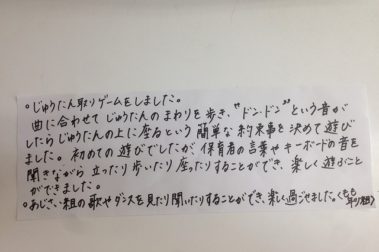 ○じゅうたん取りゲームをしました。
曲に合わせてじゅうたんのまわりを歩き、"ドン・ドン"という音が
したらじゅうたんの上に座るという簡単な約束事を決めて遊び
ました。初めての遊びでしたが、保育者の言葉やキーボードの音を
聞きながら立ったり歩いたり座ったりすることができ、楽しく遊ぶこと
ができました。
○あじさい組の歌やダンスを見たり聞いたりすることができ、楽しく過ごせました。〈もも